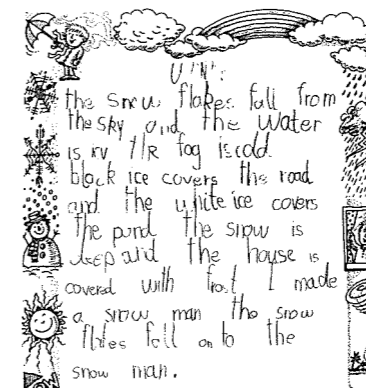 the snow flakes fall from
the sky and the water
is fog is cold.
black ice covers the road
and the white ice covers
the pond the snow is
deep and the house is
covered with frost I made
a snow man the snow
flakes fall on to the
snow man.